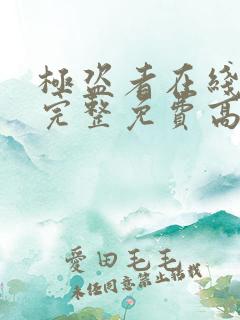 極盜者在綫
完整免費高
愛田毛毛
未經同意禁止搭訕